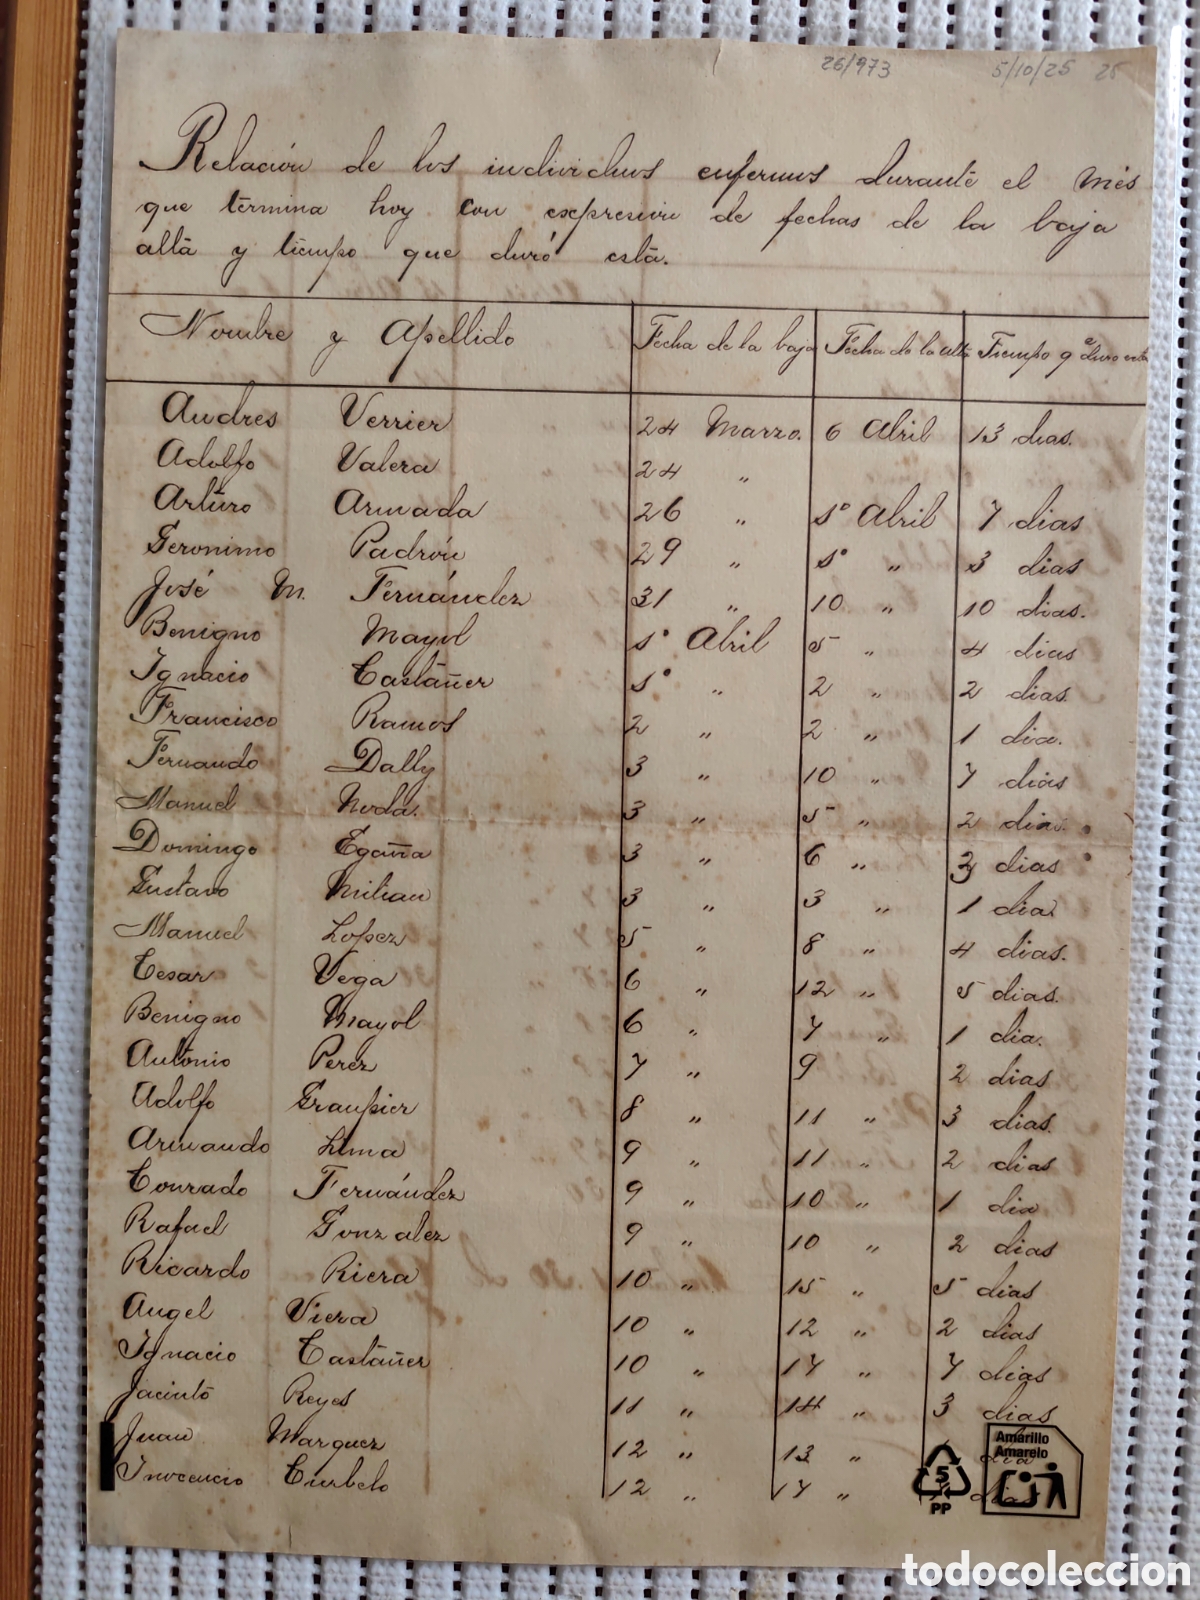 26/973 5/10/25 25
Relación de los individuos enfermos durante el més
que termina hoy con expresión de fechas de la baja
alta y tiempo que duró esta.
Nombre y Apellido Fecha de la baja Fecha de la alta Tiempo qᵉ duro esta
Andres Verrier 24 Marzo. 6 Abril 13 dias.
Adolfo Valera 24 "
Arturo Armada 26 " 1º Abril 7 dias
Geronimo Padrón 29 " 1º " 3 dias
José M. Fernández 31 " 10 " 10 dias.
Benigno Mayol 1º Abril 5 " 4 dias
Ignacio Castañer 1º " 2 " 2 dias.
Francisco Ramos 2 " 2 " 1 dia.
Fernando Dally 3 " 10 " 7 dias
Manuel Noda. 3 " 5 " 2 dias.
Domingo Egaña 3 " 6 " 3 dias
Gustavo Milian 3 " 3 " 1 dia
Manuel Lopez 5 " 8 " 4 dias.
Cesar Vega 6 " 12 " 5 dias.
Benigno Mayol 6 " 7 " 1 dia.
Antonio Perez 7 " 9 2 dias
Adolfo Graupier 8 " 11 " 3 dias.
Armando Lima 9 " 11 " 2 dias
Conrado Fernández 9 " 10 " 1 dia
Rafael Gonzalez 9 " 10 " 2 dias
Ricardo Riera 10 " 15 " 5 dias
Angel Viera 10 " 12 " 2 dias
Ignacio Castañer 10 " 17 " 7 dias
Jacinto Reyes 11 " 14 " 3 dias
Juan Marquez 12 " 13 " dia
Inocencio Curbelo 12 " 17 " dias
Amarillo
Amarelo
5
PP
todocoleccion